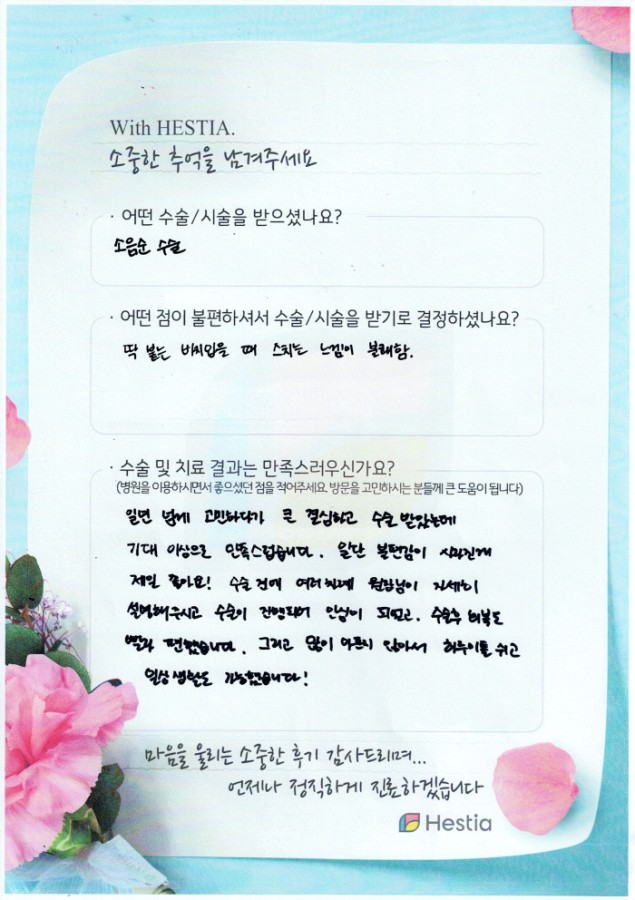 With HESTIA.
소중한 추억을 남겨주세요
· 어떤 수술/시술을 받으셨나요?
소음순 수술
· 어떤 점이 불편하셔서 수술/시술을 받기로 결정하셨나요?
딱 붙는 바지입을 때 스치는 느낌이 불쾌함.
· 수술 및 치료 결과는 만족스러우신가요?
(병원을 이용하시면서 좋으셨던 점을 적어주세요. 방문을 고민하시는 분들께 큰 도움이 됩니다)
일년 넘게 고민하다가 큰 결심하고 수술 받았는데
기대 이상으로 만족스럽습니다. 일단 불편감이 사라진게
제일 좋아요! 수술 전에 여러차례 원장님이 자세히
설명해주시고 수술이 진행되어 안심이 되었고. 수술후 회복도
빨라 편했습니다. 그리고 많이 아프지 않아서 하루이틀 쉬고
일상생활도 가능했습니다!
마음을 울리는 소중한 후기 감사드리며...
언제나 정직하게 진료하겠습니다
Hestia